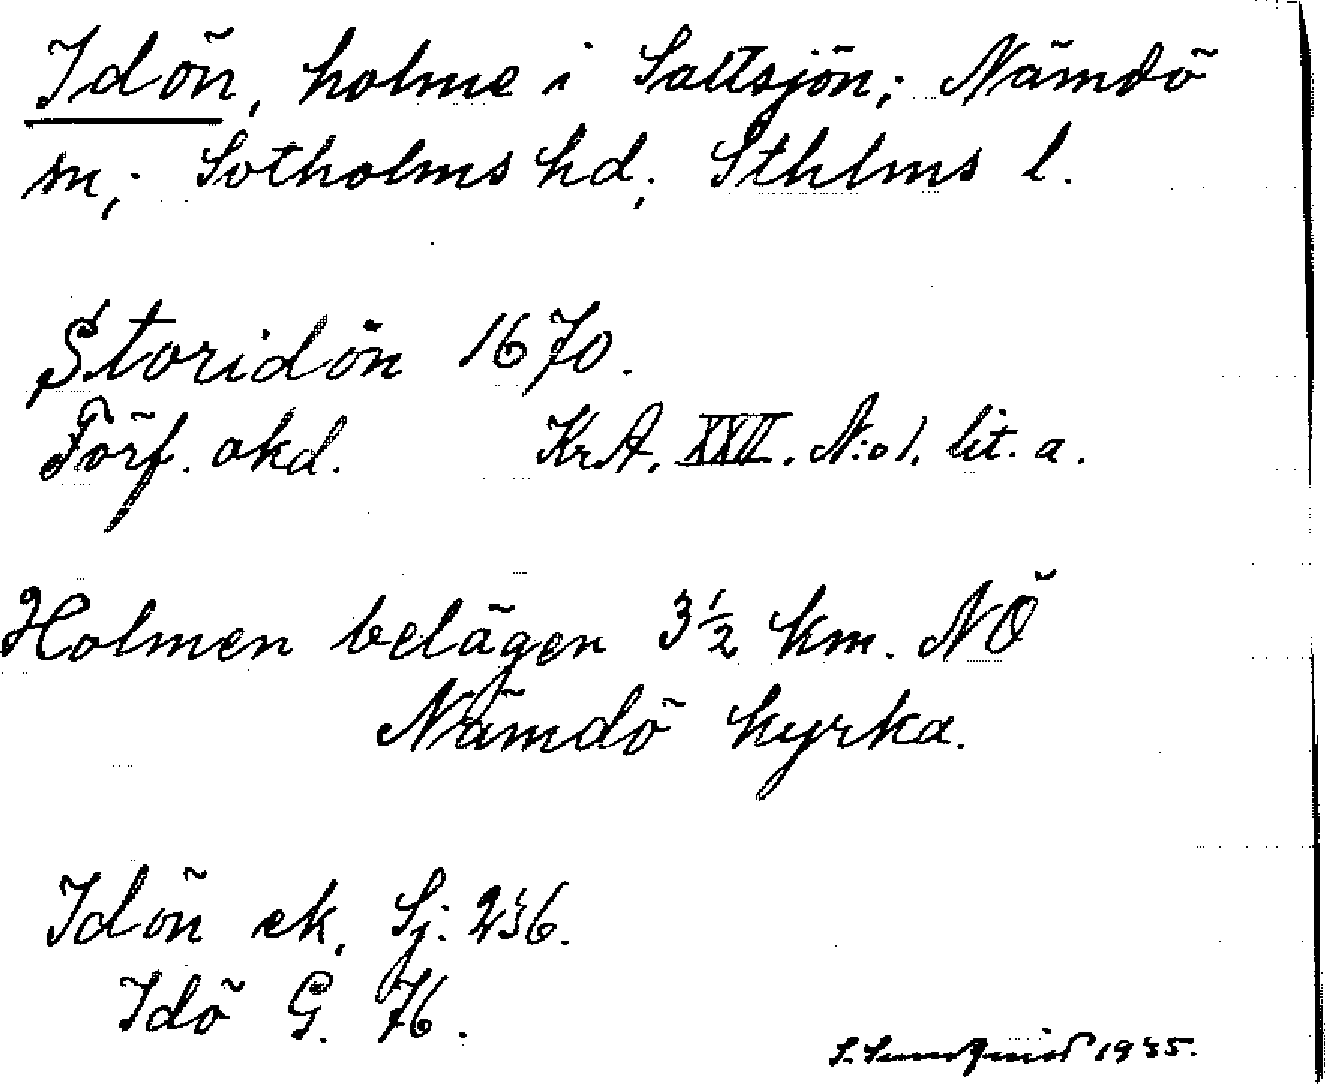 Idön, holme i Saltsjön; Nämdö
sn; Sotholms hd; Sthlms l.
Storidön 1670.
Förf. okd. KrA. XXVI. N:o 1. lit. a.
Holmen belägen 3 1/2 km. NÖ
Nämdö kyrka.
Idön ek. Sj: 236.
Idö G. 76.
1935.